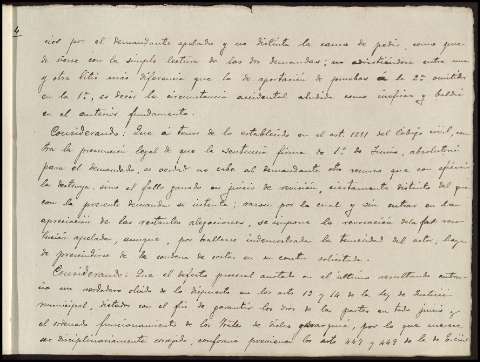 4
cios por el demandante apelado y no distinta la causa de pedir, como que
de viene con la simple lectura de las dos demandas; no advirtiéndose entre una
y otra litis más diferencia que la de aportación de pruebas á la 2ª omitidas
en la 1ª, es decir la circunstancia accidental aludida como inefizaz y baldía
en el anterior fundamento.
Considerando: Que á tenor de lo establecido en el art. 1251 del Código civil, con
tra la presunción legal de que la sentencia firme de 1º de Junio, absolutoria
para el demandado, es verdad no cabe al demandante otro recurso que con eficacia
la destruya, sino el fallo ganado en juicio de revisión, ciertamente distinto del que
con la presente demanda se intenta; razón por la cual y sin entrar en la
apreciación de las restantes alegaciones, se impone la revocación de la
apelada, aunque, por hallarse indemostrada la temeridad del actor, haya
de prescindirse de la condena de costas en su contra solicitada.
Considerando: Que el defecto procesal anotado en el último resultando entra
ña un verdadero olvido de lo dispuesto en los arts 13 y 14 de la Ley de Justicia
municipal, dictados con el fin de garantir los dros de las partes en todo juicio y
el ordenado funcionamiento de los Trales de dicha, por lo que merece
ser disciplinariamente corregido, conforme previenen los arts 447 y 449 de la de Enjui